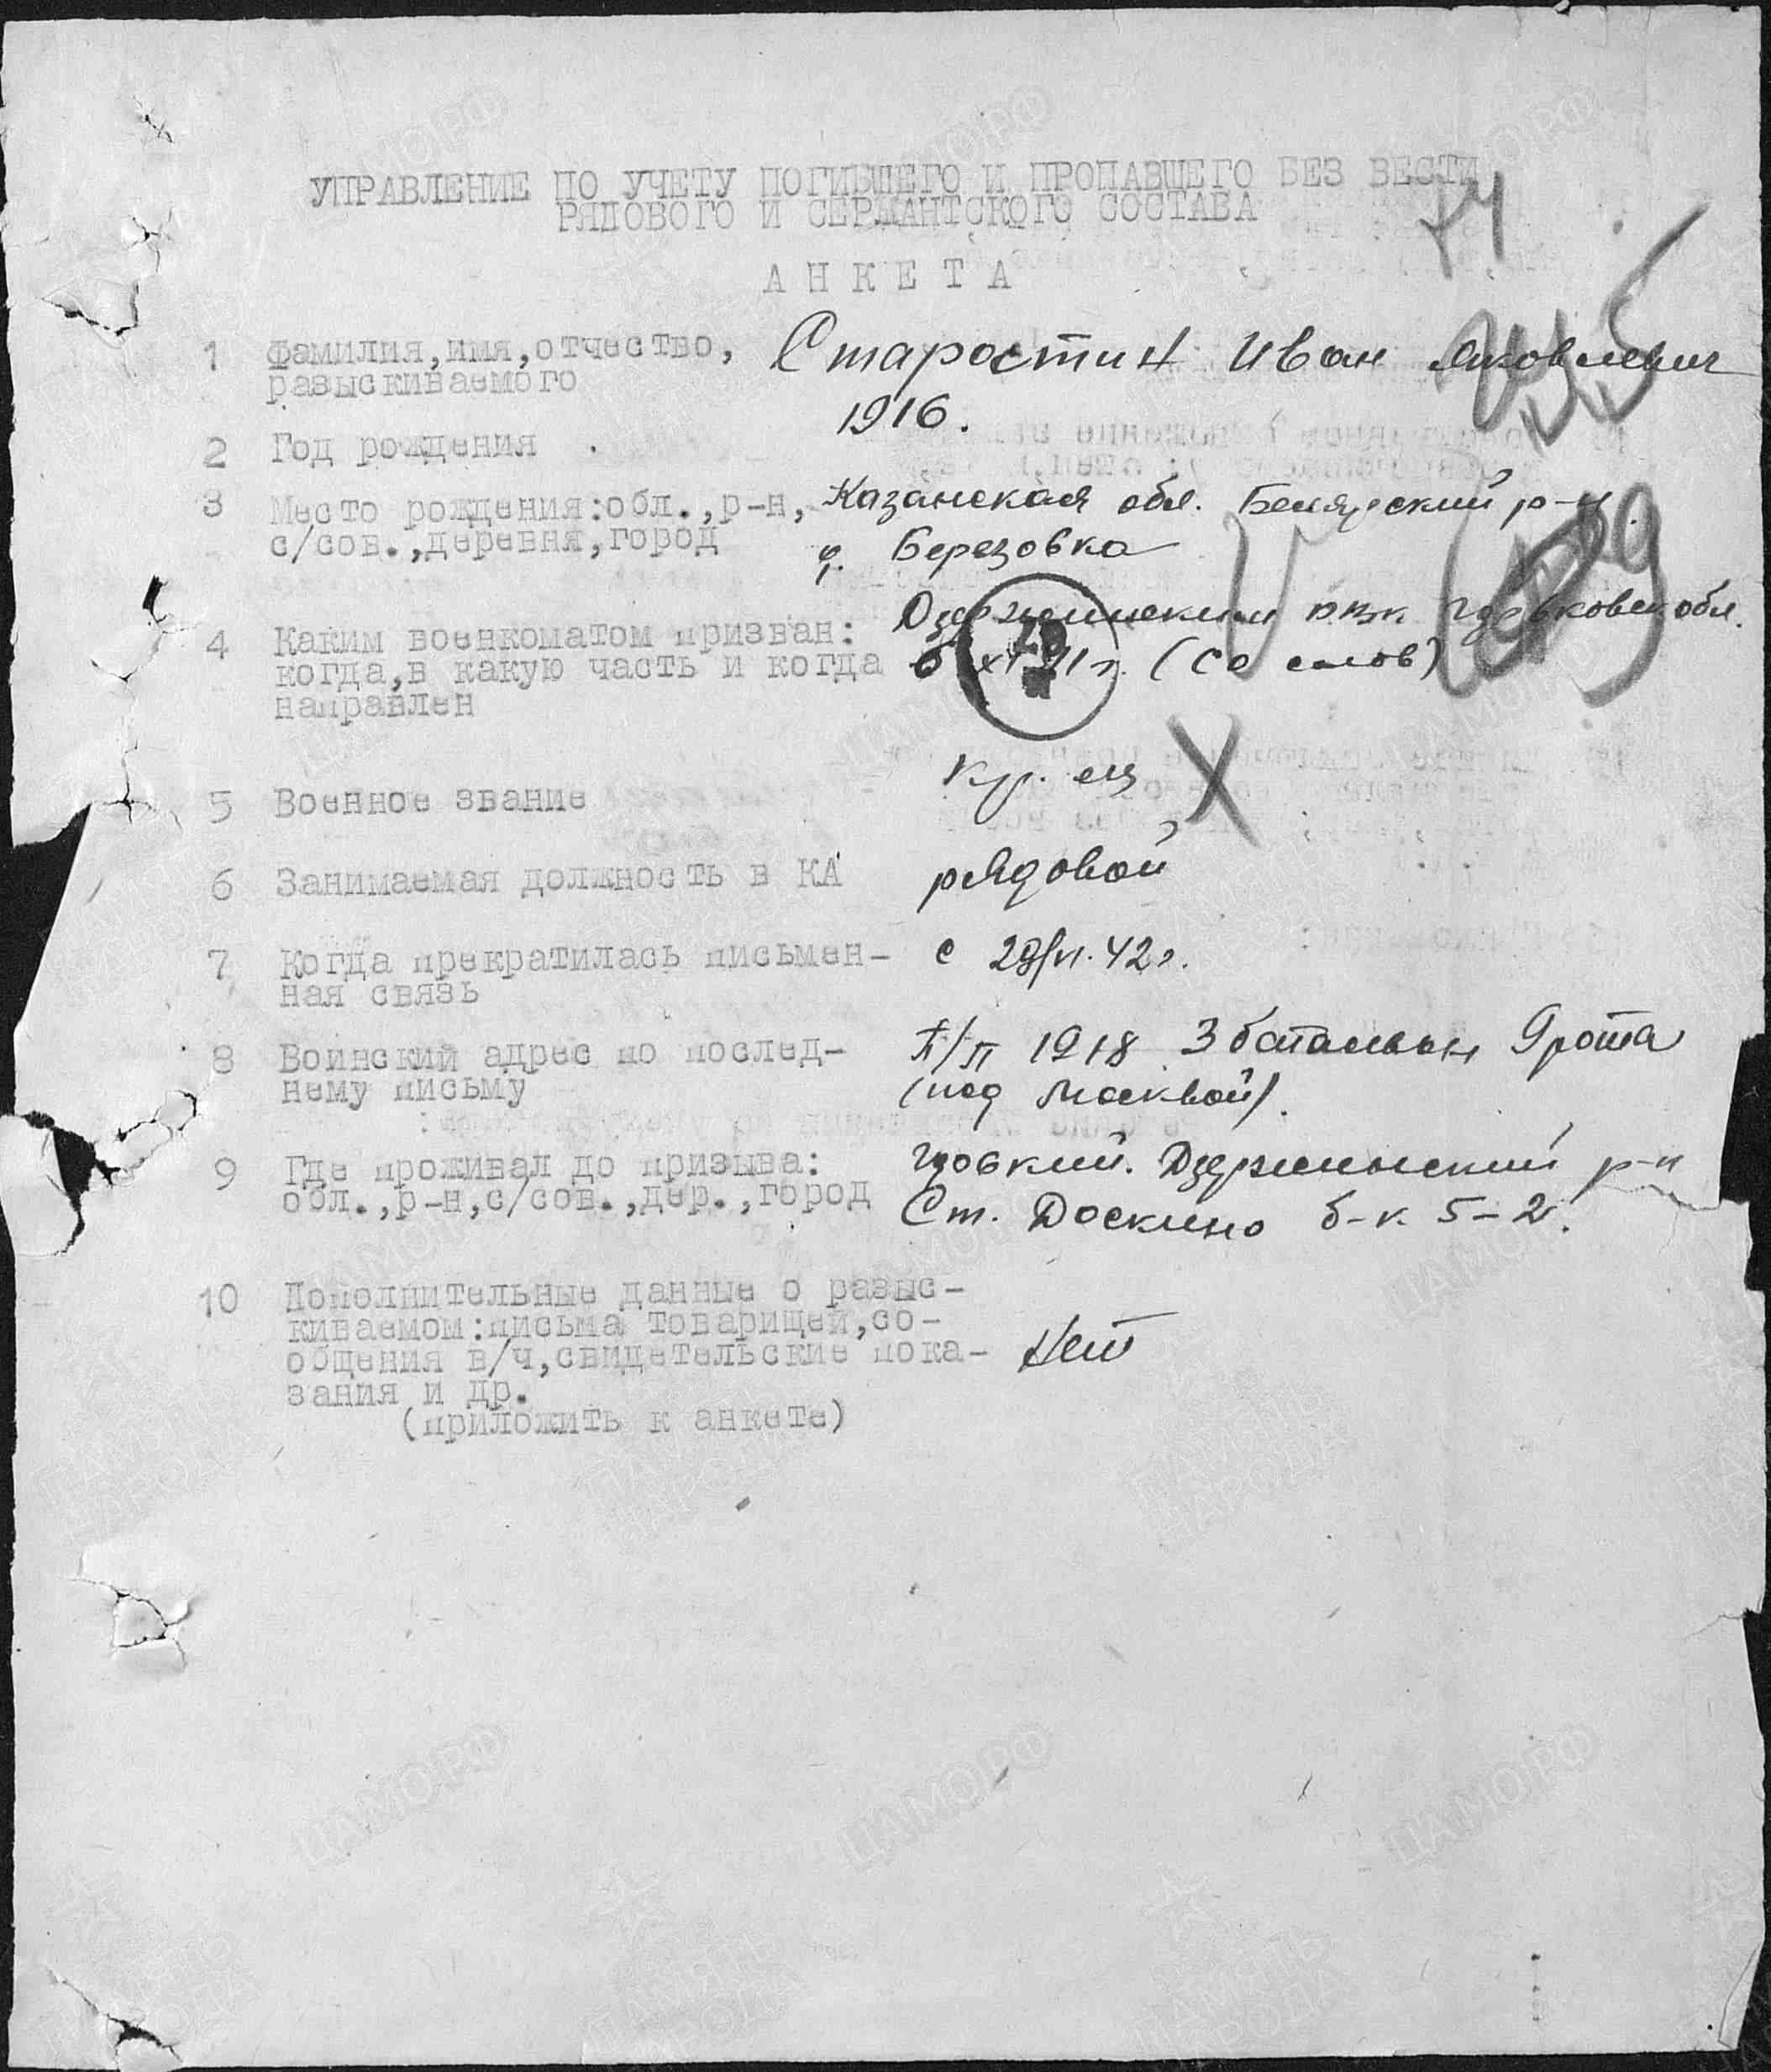 УПРАВЛЕНИЕ ПО УЧЕТУ ПОГИБШЕГО И ПРОПАВШЕГО БЕЗ ВЕСТИ
РЯДОВОГО И СЕРЖАНТСКОГО СОСТАВА
74
АНКЕТА
1 Фамилия, имя, отчество, Старостин Иван Яковлевич
разыскиваемого
1916.
2 Год рождения
3 Место рождения: обл., р-н, Казанская обл. р-н
с/сов., деревня, город Березовка
Дзержинским рвк обл.
4 Каким военкоматом призван:
когда, в какую часть и когда (со слов)
направлен
кр. ец
5 Военное звание
6 Занимаемая должность в КА рядовой
7 Когда прекратилась письмен- с 42г.
ная связь
8 Воинский адрес по послед- п/п 1918 3 батальон 9 рота
нему письму (под Москвой).
9 Где проживал до призыва: Дзержинский р-н
обл., р-н, с/сов., дер., город Ст. Доскино б-к. 5-2.
10 Дополнительные данные о разыс-
киваемом: письма товарищей, со-
общения в/ч, свидетельские пока- Нет
зания и др.
(приложить к анкете)
ЦАМО.РФ
ПАМЯТЬ НАРОДА